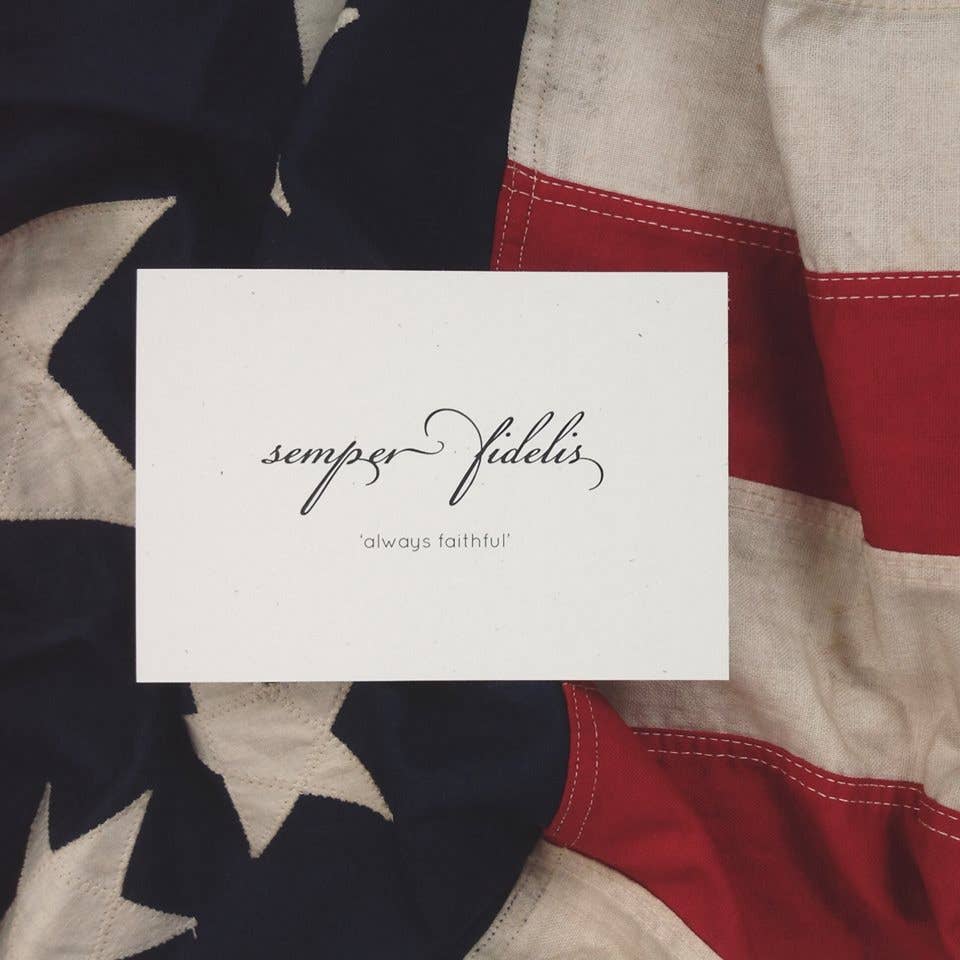 semper fidelis
'always faithful'